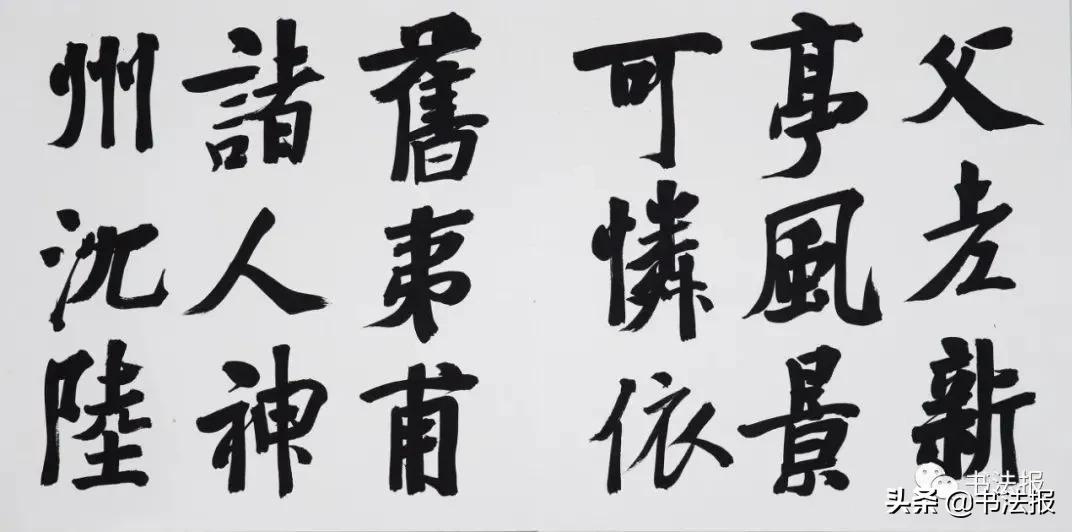 父老新
亭風景
可憐依
舊夷甫
諸人神
州沈陸
书法报
头条 @书法报